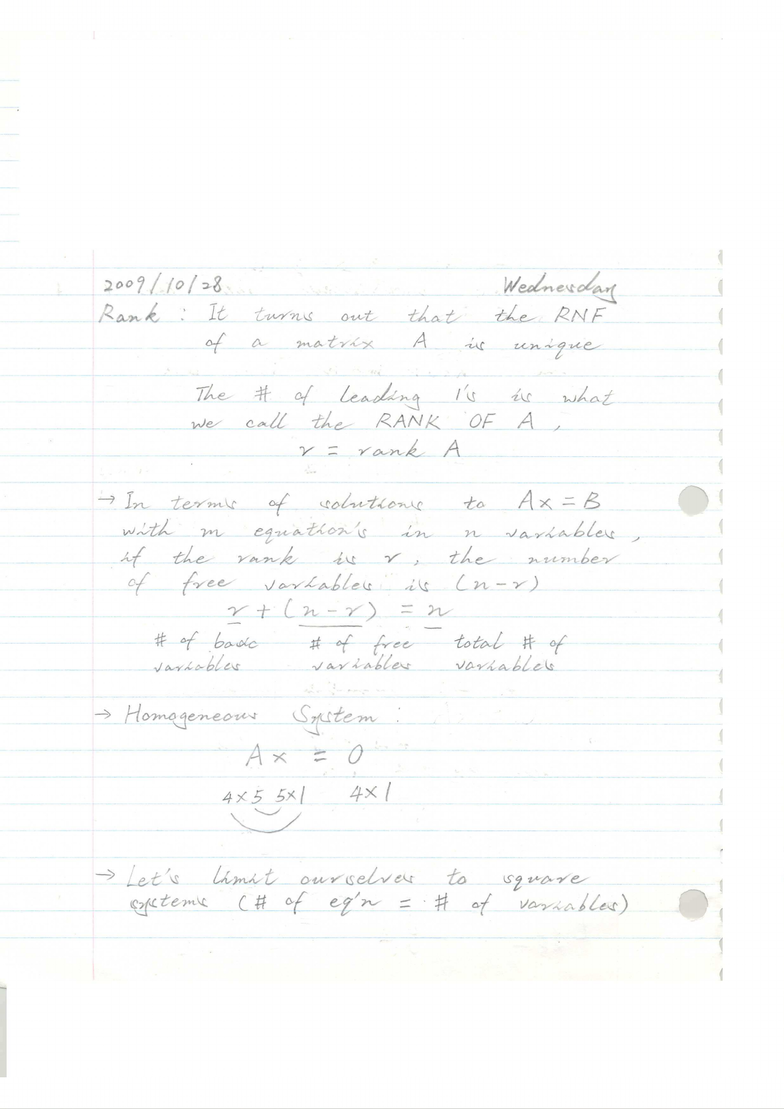 2009/10/28 Wednesday
Rank : It turns out that the RNF
of a matrix A is unique
The # of leading 1's is what
we call the RANK OF A ,
r = rank A
→ In terms of solutions to Ax = B
with m equation's in n variables ,
if the rank is r , the number
of free variables is (n-r)
r + (n-r) = n
# of basic # of free total # of
variables variables variables
→ Homogeneous System :
Ax = 0
4×5 5×1 4×1
→ Let's limit ourselves to square
systems (# of eq'n = # of variables)